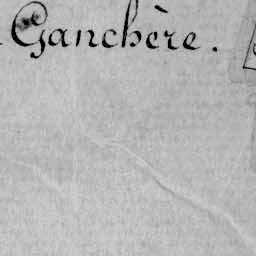 Ganchère.